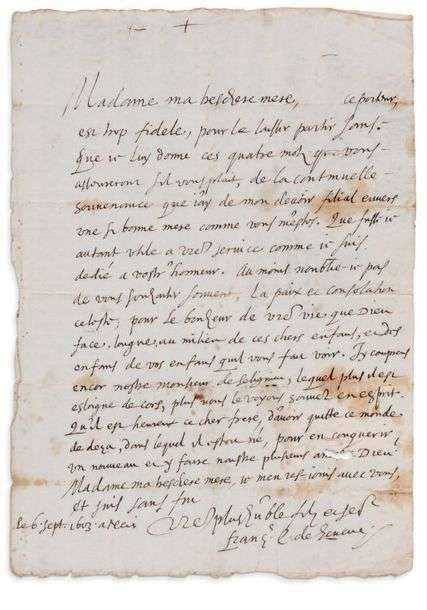 +
Madame ma treschere mere, ce porteur,
est trop fidele, pour le laisser partir sans
que ie luy donne ces quatre motz qui vous
asseureront sil vous plait, de la continuelle
souvenance que iay de mon devoir filial envers
une si bonne mere comme vous m'estes. Que fusse ie
autant utile a vre service comme ie suis
dedié a vostre honneur. Au moins noublie-ie pas
de vous souhaiter souvent, la paix et consolation
celeste, pour le bonheur de vre vie que Dieu
face, longue, au milieu de ces chers enfans, et des
enfans de vos enfans quil vous fait voir. Iy comprens
encor nostre monsieur de
lequel plus il est
esloigné de cors, plus nous le voyons souvent en esprit.
Quil est heureux ce cher frere, davoir quitté ce monde
de deça, dans lequel il estoit né, pour en conquerir
un nouveau et y faire naistre plusieurs a Dieu.
Madame ma treschere mere, ie men res-iouis avec vous,
et suis sans fin
Le 6 sept. 1613. a
Vre plus humble filz et ser
Franç. E. de Geneve